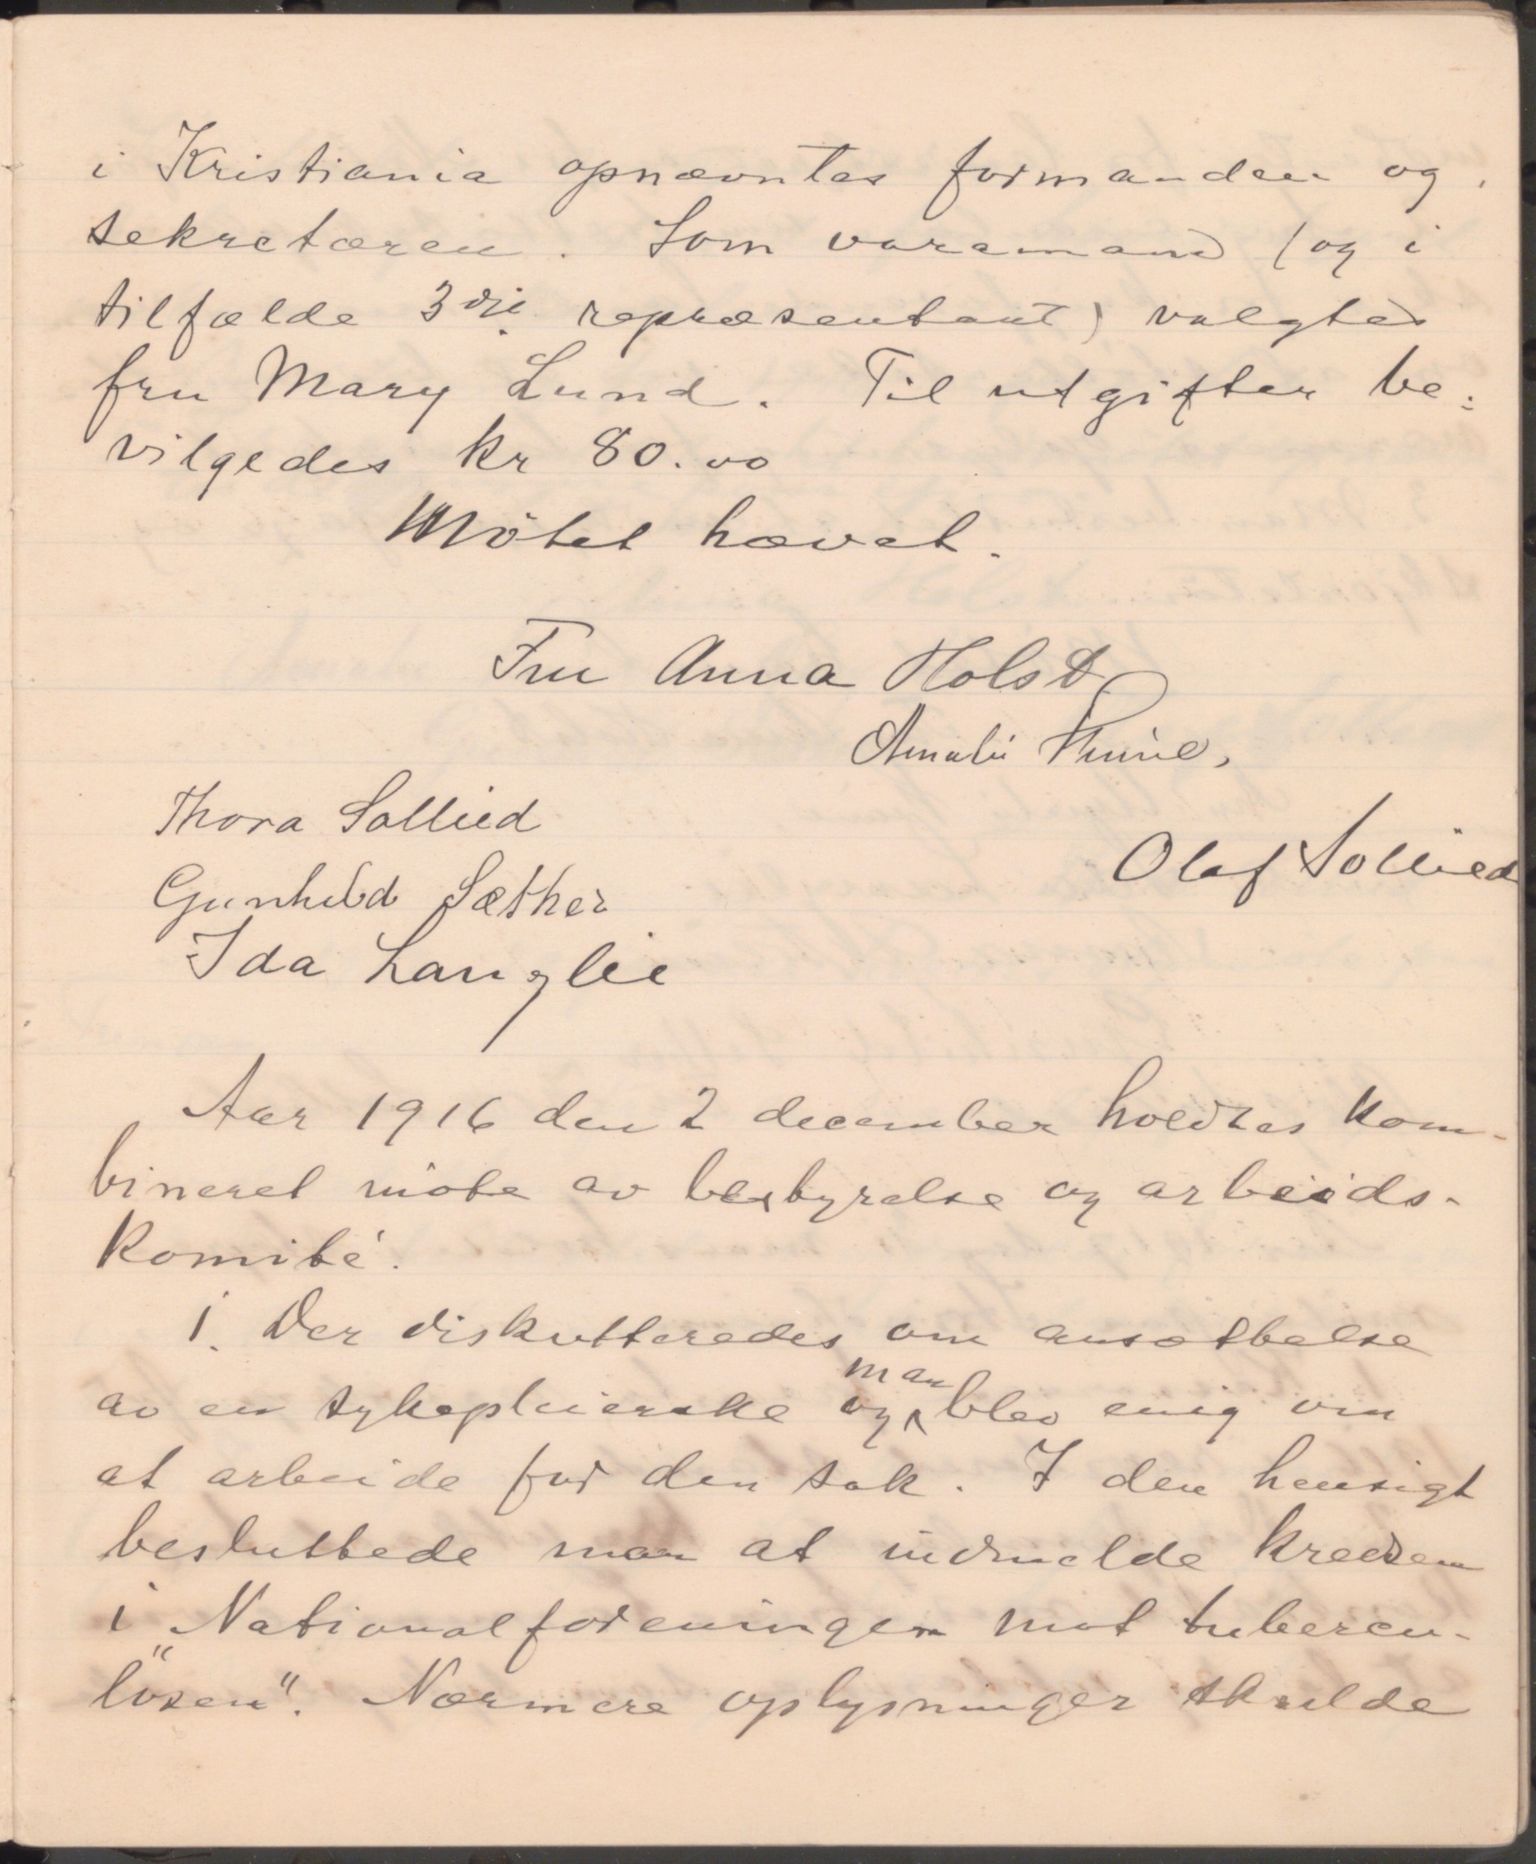 i Kristiania opnævntes formanden og
sekretæren. Som varamand (og i
tilfælde 3die repræsentant) valgtes
fru Mary Lund. Til utgifter be-
vilgedes kr 80.00
Møtet hævet.
Fru Anna Holst
Amalie
Thora Sollied
Olaf Sollied
Gunhild Sæther
Ida Langlie
Aar 1916 den 2 december holdtes kom-
bineret møte av bestyrelse og arbeids-
komité.
1. Der diskutteredes om ansættelse
av en sykepleierske og man blev enig om
at arbeide for den sak. I den hensigt
besluttede man at indmelde kredsen
i "Nationalforeningen mot tuberku-
løsen". Nærmere oplysninger skulde